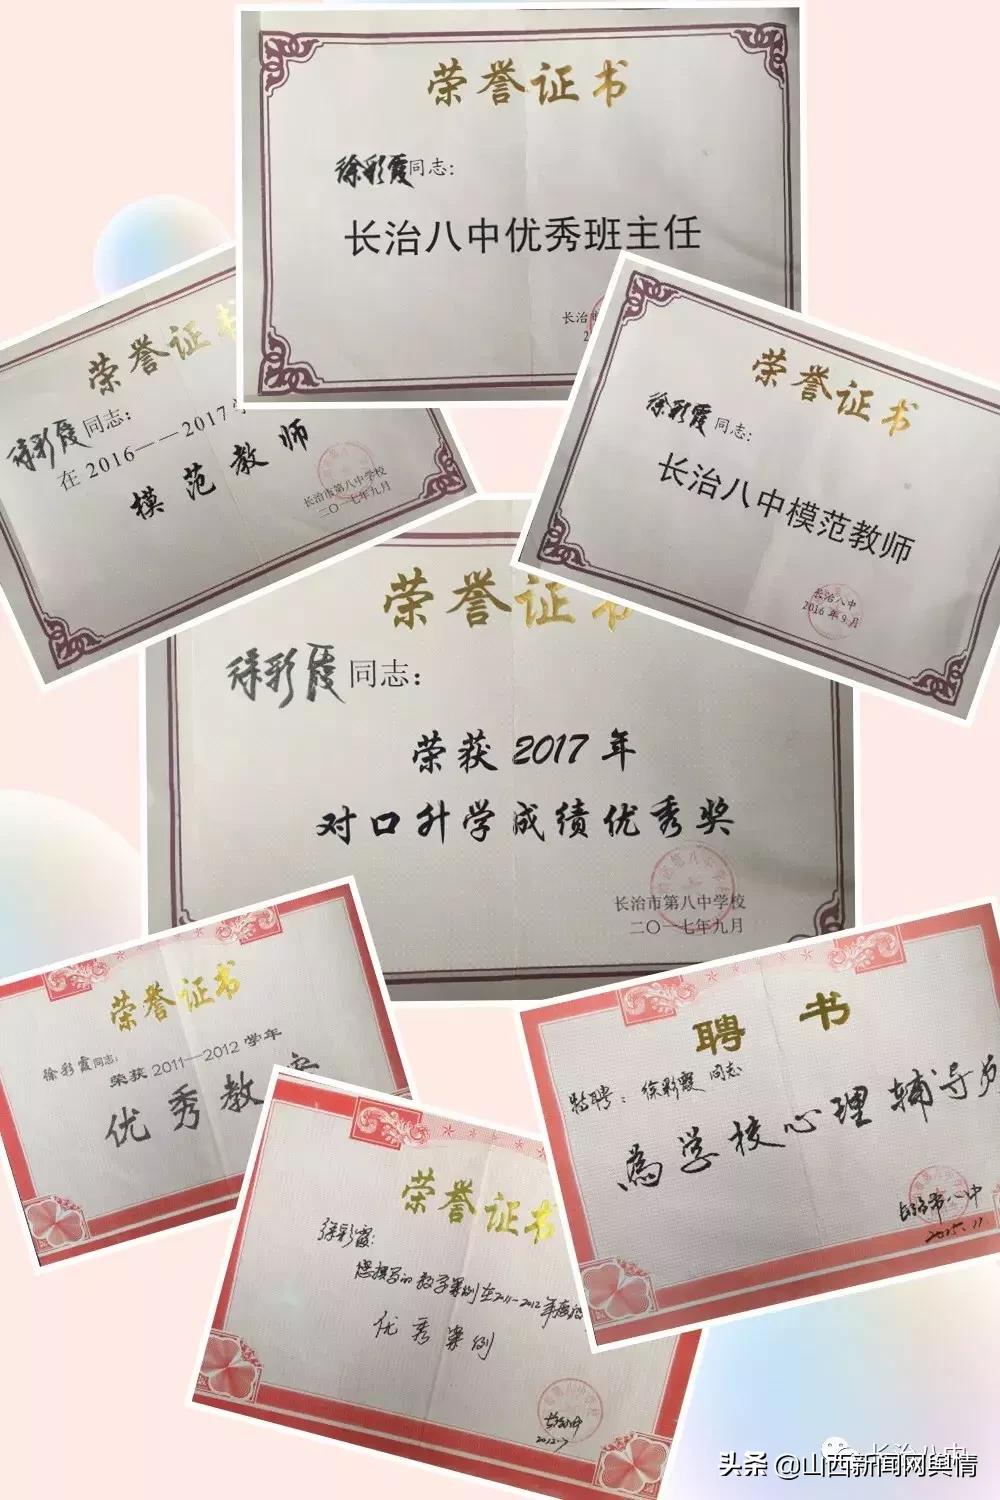 荣誉证书
徐彩霞同志：
长治八中优秀班主任
长治市
2
荣誉证书
徐彩霞同志：
在2016——2017学
模范教师
长治市第八中学校
二〇一七年九月
荣誉证书
徐彩霞同志：
长治八中模范教师
长治八中
2016年9月
荣誉证书
徐彩霞同志：
荣获2017年
对口升学成绩优秀奖
长治市第八中学校
二〇一七年九月
荣誉证书
徐彩霞同志：
荣获2011—2012学年
优秀教
聘书
特聘：徐彩霞同志
为学校心理辅导员
长治市八中
2015.11
荣誉证书
徐彩霞：
您撰写的教学案例在2011-2012年度
优秀案例
长治八中
2012.7
长治八中
头条 @山西新闻网舆情